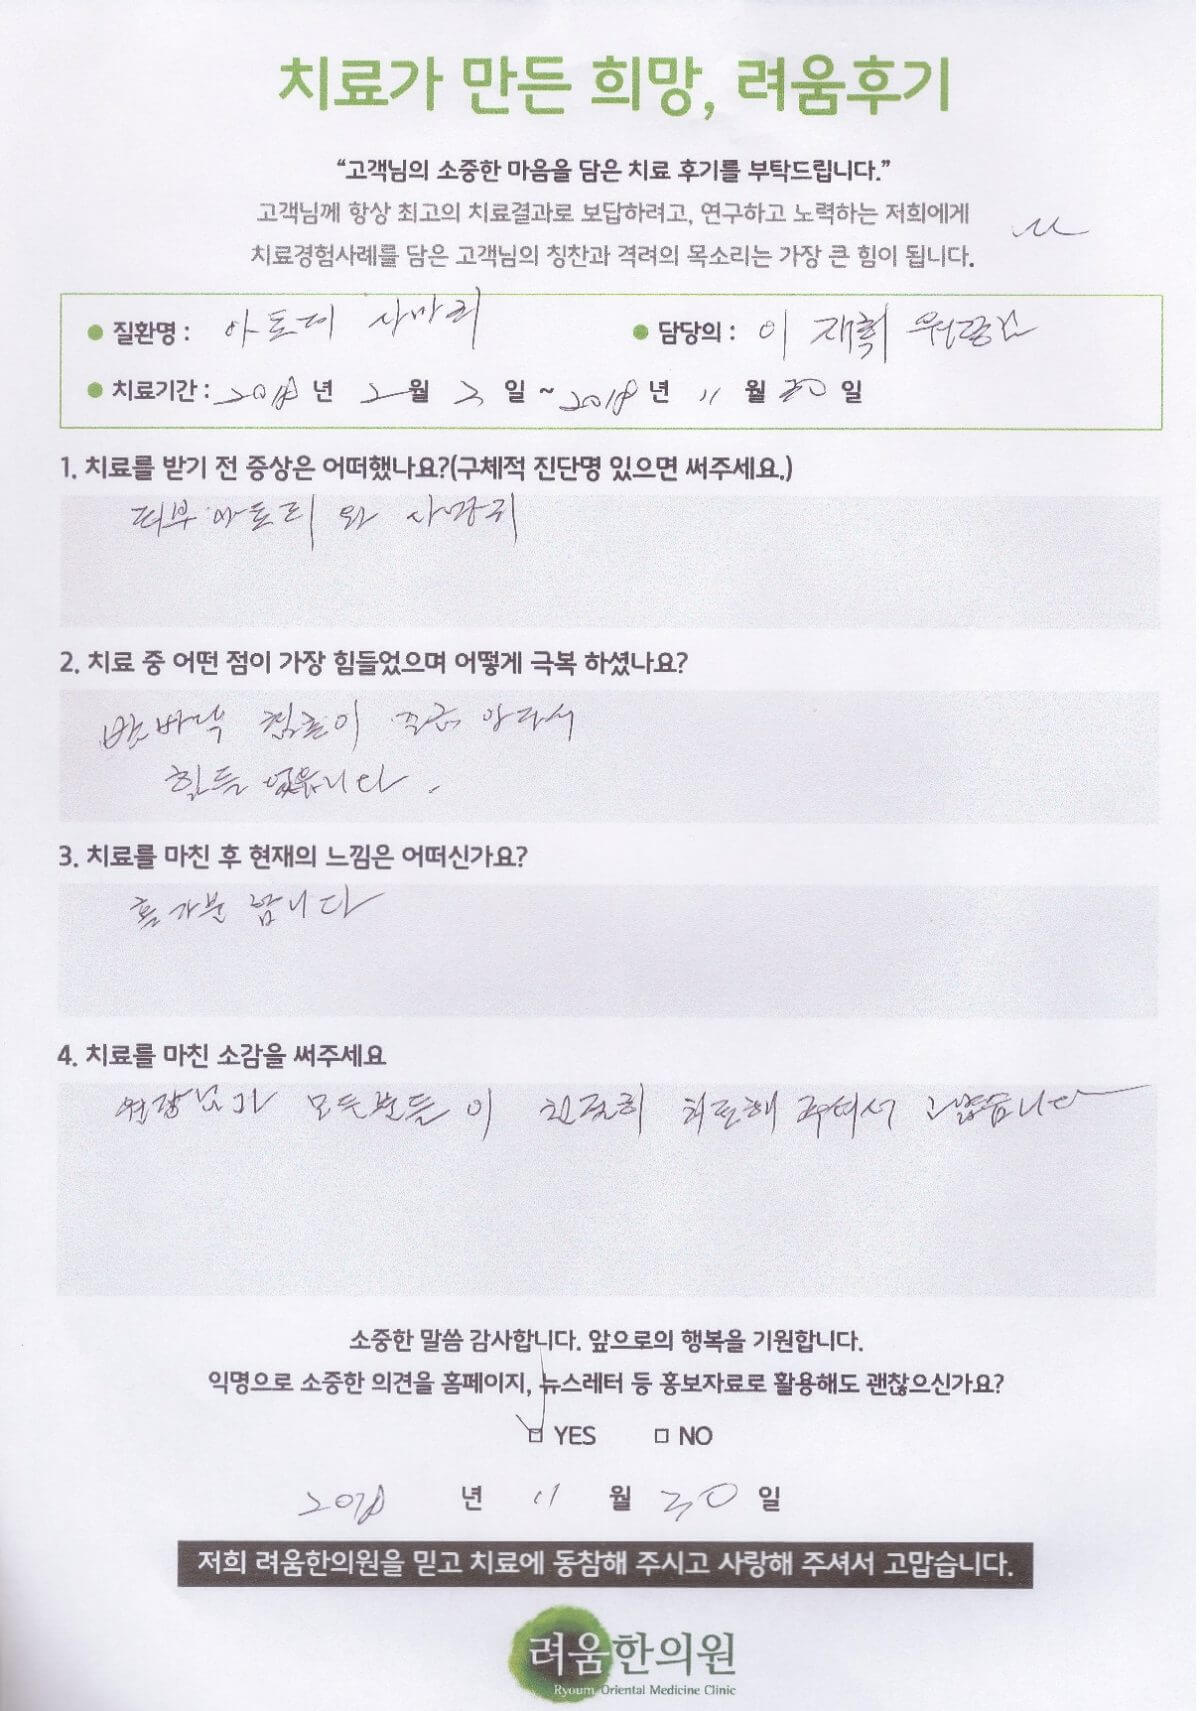 치료가 만든 희망, 려움후기
“고객님의 소중한 마음을 담은 치료 후기를 부탁드립니다.”
고객님께 항상 최고의 치료결과로 보답하려고, 연구하고 노력하는 저희에게
치료경험사례를 담은 고객님의 칭찬과 격려의 목소리는 가장 큰 힘이 됩니다.
질환명 : 아토피 사마귀 담당의 : 이재휘 원장님
치료기간 : 2018 년 2 월 3 일 ~ 2018 년 11 월 30 일
1. 치료를 받기 전 증상은 어떠했나요?(구체적 진단명 있으면 써주세요.)
피부 아토피 와 사마귀
2. 치료 중 어떤 점이 가장 힘들었으며 어떻게 극복 하셨나요?
발바닥 침은이 조금 아파서
힘들 었읍니다.
3. 치료를 마친 후 현재의 느낌은 어떠신가요?
홀가분 합니다
4. 치료를 마친 소감을 써주세요
원장님과 모든분들이 친절히 치료해 주셔서 고맙습니다
소중한 말씀 감사합니다. 앞으로의 행복을 기원합니다.
익명으로 소중한 의견을 홈페이지, 뉴스레터 등 홍보자료로 활용해도 괜찮으신가요?
YES NO
2018 년 11 월 30 일
저희 려움한의원을 믿고 치료에 동참해 주시고 사랑해 주셔서 고맙습니다.
려움한의원
Ryoum Oriental Medicine Clinic